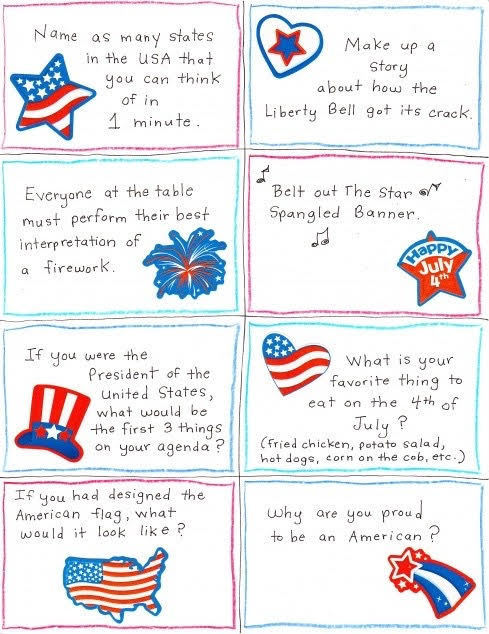 Name as many states
in the USA that
you can think
of in
1 minute.
Make up a
story
about how the
Liberty Bell got its crack.
Everyone at the table
must perform their best
interpretation of
a firework.
Belt out The Star
Spangled Banner.
Happy
July
4th
If you were the
President of the
United States,
what would be
the first 3 things
on your agenda?
What is your
favorite thing to
eat on the 4th of
July?
(fried chicken, potato salad,
hot dogs, corn on the cob, etc.)
If you had designed the
American flag, what
would it look like?
Why are you proud
to be an American?